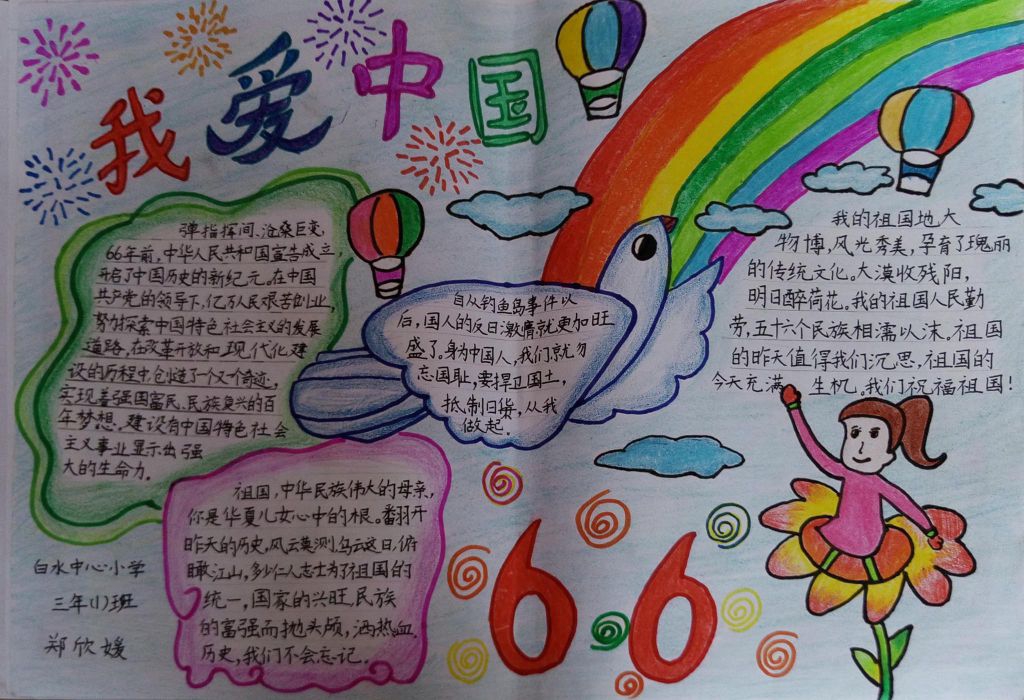 我爱中国
弹指挥间、沧桑巨变,
66年前,中华人民共和国宣告成立,
开启了中国历史的新纪元。在中国
共产党的领导下,亿万人民艰苦创业,
努力探索中国特色社会主义的发展
道路,在改革开放和现代化建
设的历程中,创造了一个又一个奇迹,
实现着强国富民、民族复兴的百
年梦想。建设有中国特色社会
主义事业显示出强
大的生命力。
自从钓鱼岛事件以
后,国人的反日激情就更加旺
盛了。身为中国人,我们就勿
忘国耻,要捍卫国土,
抵制日货,从我
做起。
我的祖国地大
物博,风光秀美,孕育了瑰丽
的传统文化。大漠收残阳,
明日醉荷花。我的祖国人民勤
劳,五十六个民族相濡以沫。祖国
的昨天值得我们沉思,祖国的
今天充满生机。我们祝福祖国!
祖国,中华民族伟大的母亲,
你是华夏儿女心中的根。翻开
昨天的历史,风云莫测,乌云这日,俯
瞰江山,多少仁人志士为了祖国的
统一,国家的兴旺,民族
的富强而抛头颅,洒热血,
历史,我们不会忘记。
白水中心小学
三年(1)班
郑欣媛
6.6